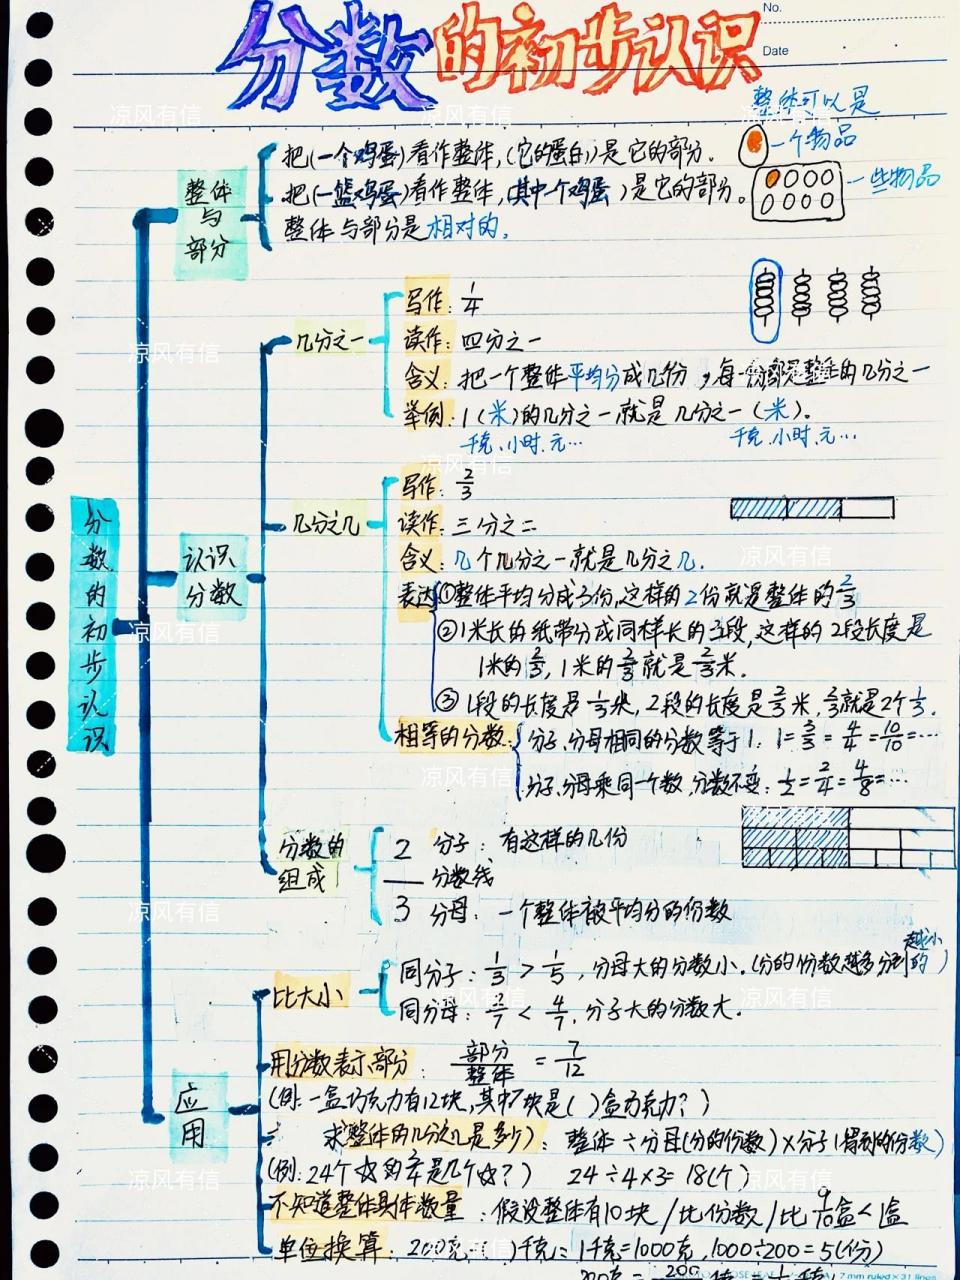 分数的初步认识
No.
Date
整体可以是
一个物品
一些物品
分数的初步认识
整体与部分
把(一个鸡蛋)看作整体,(它的蛋白)是它的部分.
把(一篮鸡蛋)看作整体,(其中一个鸡蛋)是它的部分。
整体与部分是相对的。
认识分数
几分之一
写作: 1/4
读作: 四分之一
含义: 把一个整体平均分成几份,每一份都是整体的几分之一
举例: 1(米)的几分之一就是几分之一(米)。
千克、小时、元… 千克、小时、元…
几分之几
写作: 2/3
读作: 三分之二
含义: 几个几分之一就是几分之几.
表达 ①整体平均分成3份,这样的2份就是整体的2/3
②1米长的纸带分成同样长的三段,这样的2段长度是
1米的2/3, 1米的2/3就是2/3米.
③1段的长度是1/3米, 2段的长度是2/3米, 2/3就是2个1/3.
相等的分数: 分子、分母相同的分数等于1: 1=3/3=4/4=10/10=…
分子、分母乘同一个数,分数不变: 1/2=2/4=4/8=…
分数的组成
2 分子: 有这样的几份
— 分数线
3 分母: 一个整体被平均分的份数
应用
比大小
同分子: 1/3 > 1/5, 分母大的分数小.(分的份数越多分到的越小)
同分母: 2/7 < 4/7, 分子大的分数大.
用分数表示部分: 部分/整体 = 7/12
(例: 一盒巧克力有12块,其中7块是( )盒巧克力?)
求整体的几分之几是多少): 整体÷分母(分的份数)×分子(得到的份数)
(例: 24个☆的3/4是几个☆?) 24÷4×3=18(个)
不知道整体具体数量: 假设整体有10块/比份数/比9/10盒<1盒
单位换算: 200克=( )千克: 1千克=1000克, 1000÷200=5(份)
200克=200
7 mm ruled×31 lines
凉风有信
凉风有信
凉风有信
凉风有信
凉风有信
凉风有信
凉风有信
凉风有信
凉风有信
凉风有信
凉风有信